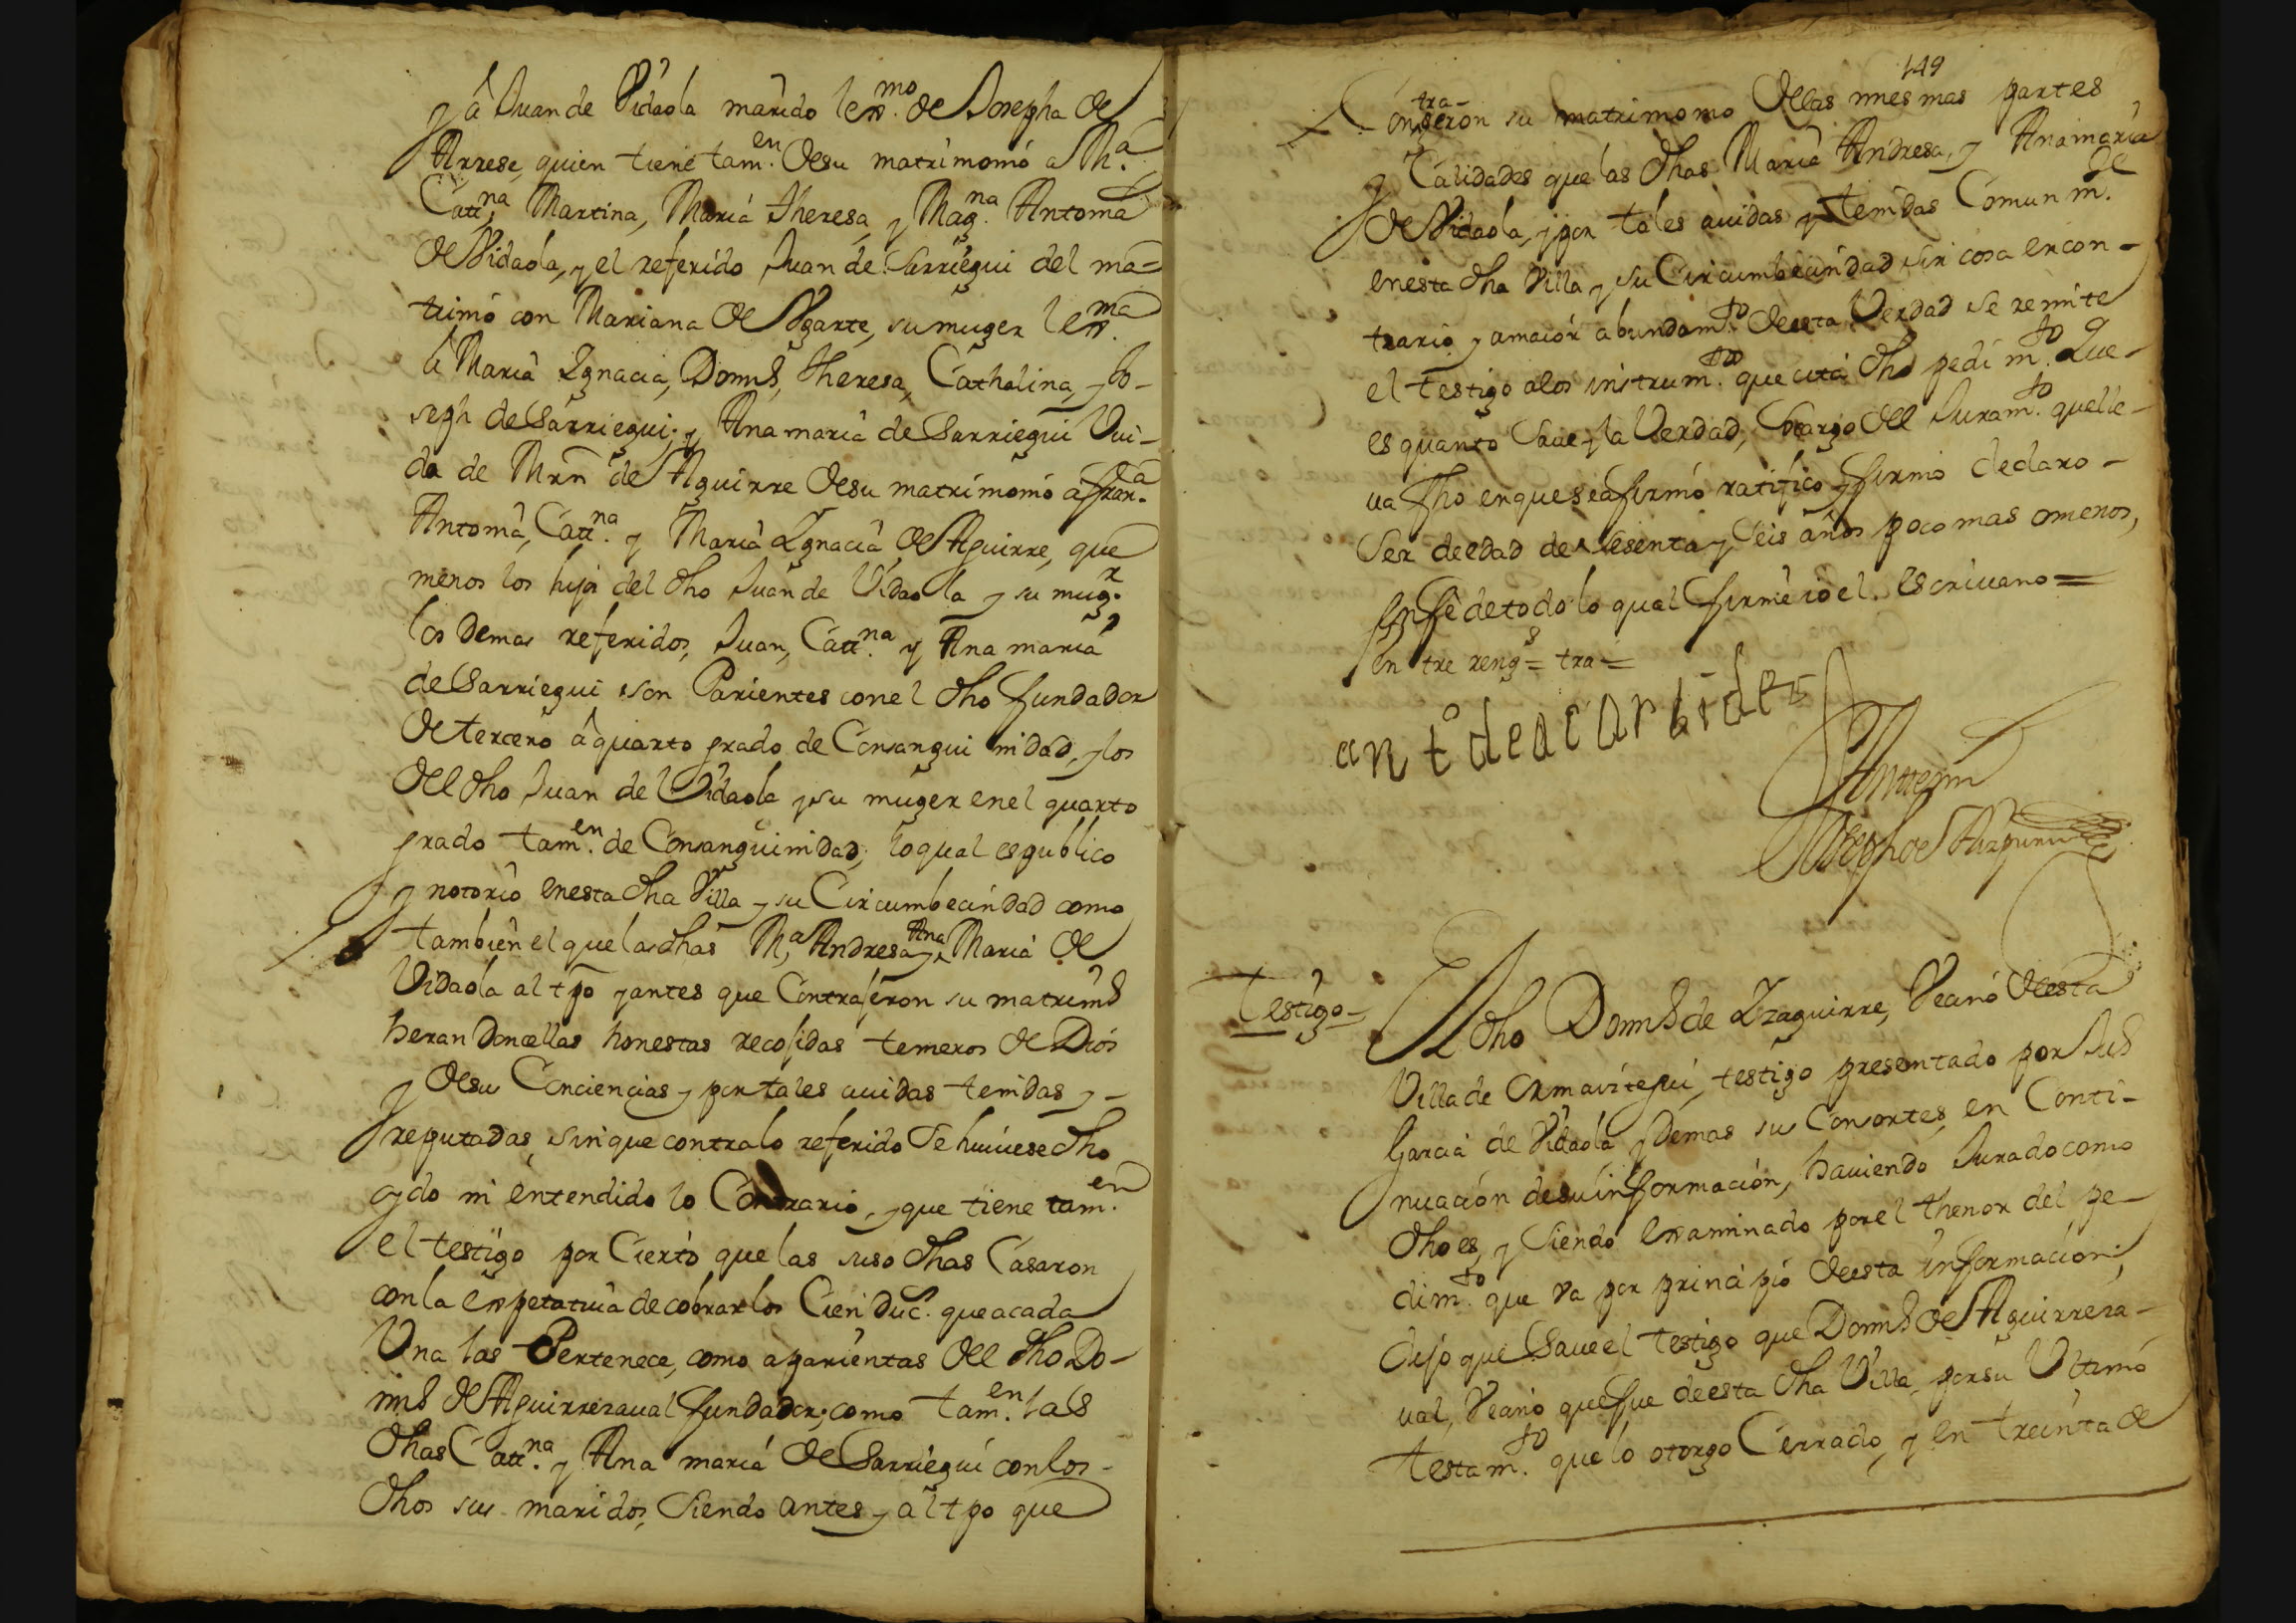 y â Juan de Vidaola marido lexmo. de Josepha de
Arrese, quien tiene tamen. de su matrimonió a Ma.
Cattna. Martina, Mariá theresa, y Magna. Antoniâ
de Vidaola, y el referido Juan de Sarriegui del ma=
trimó con Mariana de Vgarte, su muger lexma.
â Mariâ Ygnacia, Domos, theresa, Cathalina, y Jo-
seph de Sarriegui; y Ana maria de Sarriegui Viu-
da de Mrn de Aguirre de su matrimonió â Frana.
Antoniâ, Cattna. y Mariâ Ygnaciâ, de Aguirre, que
menos los hijos del dho Juan de Vidaola y su mugr.
los demas referidos, Juan, Cattna. y Ana maria
de Sarriegui son Parientes con el dho fundador
de tercero â quarto grado de Consanguinidad, y los
del dho Juan de Vidaola y su muger en el quarto
grado tamen. de Consanguinidad; lo qual es publico
y notorio en esta dha Villa y su Circumbecindad como
tambien el que las dhas Ma. Andresa, y Ana Mariá de
Vidaola al tpo y antes que Contrajeron su matrimo
heran Doncellas honestas recojidas temeros de Dios
y de su Conciencias y por tales auidas tenidas y -
reputadas, sin que contra lo referido se huuiese dho
oydo ni entendido lo Contrario, y que tiene tamen.
el testigo por Cierto que las suso dhas Casaron
con la expetatiua de cobrar los Cien Duc. que a cada
Vna las Pertenece, como a parientas del dho Do-
mos de Aguirrezaual fundador; como tamen. las
dhas Cattna. y Ana mariá de Sarriegui con los -
dhos sus maridos, Siendo antes y al tpo que
149
Contrageron su matrimonio de las mesmas partes
y Calidades que las dhas Mariâ Andresa, y Ana maria
de Vidaola, y por tales auidas y tenidas Comunmte.
en esta dha Villa y su Circumbecindad sin cosa en con-
trario y a maior abundamto. de esta Verdad se remite
el testigo a los instrumtos. que cita dho pedimto. Que -
es quanto Saue y la Verdad, so cargo del Juramto. que lle-
ua fho en que se afirmó ratifico y firmó declaro -
Ser de edad de sesenta y seis años poco mas o menos,
En fê de todo lo qual firmê io el escriuano =
En tre rengs = tra =
anto deacarbide
Ante mi
Joseph de Aizpuru
Testigo -
El dho Domos de Yzaguirre, Vecinó de esta
Villa de Ormaiztegui, testigo presentado por Jus
Garcia de Vidaola y Demas sus Consortes, en Conti-
nuación de su información, hauiendo Jurado como
dho es, y siendo examinado por el thenor del pe-
dimto. que va por principio de esta información;
dijo que Saue el testigo que Domos de Aguirreza-
ual, Vecino que fue de esta dha Villa, por su Vltimó
testamto. que lo otorgo Cerrado, y en treinta de